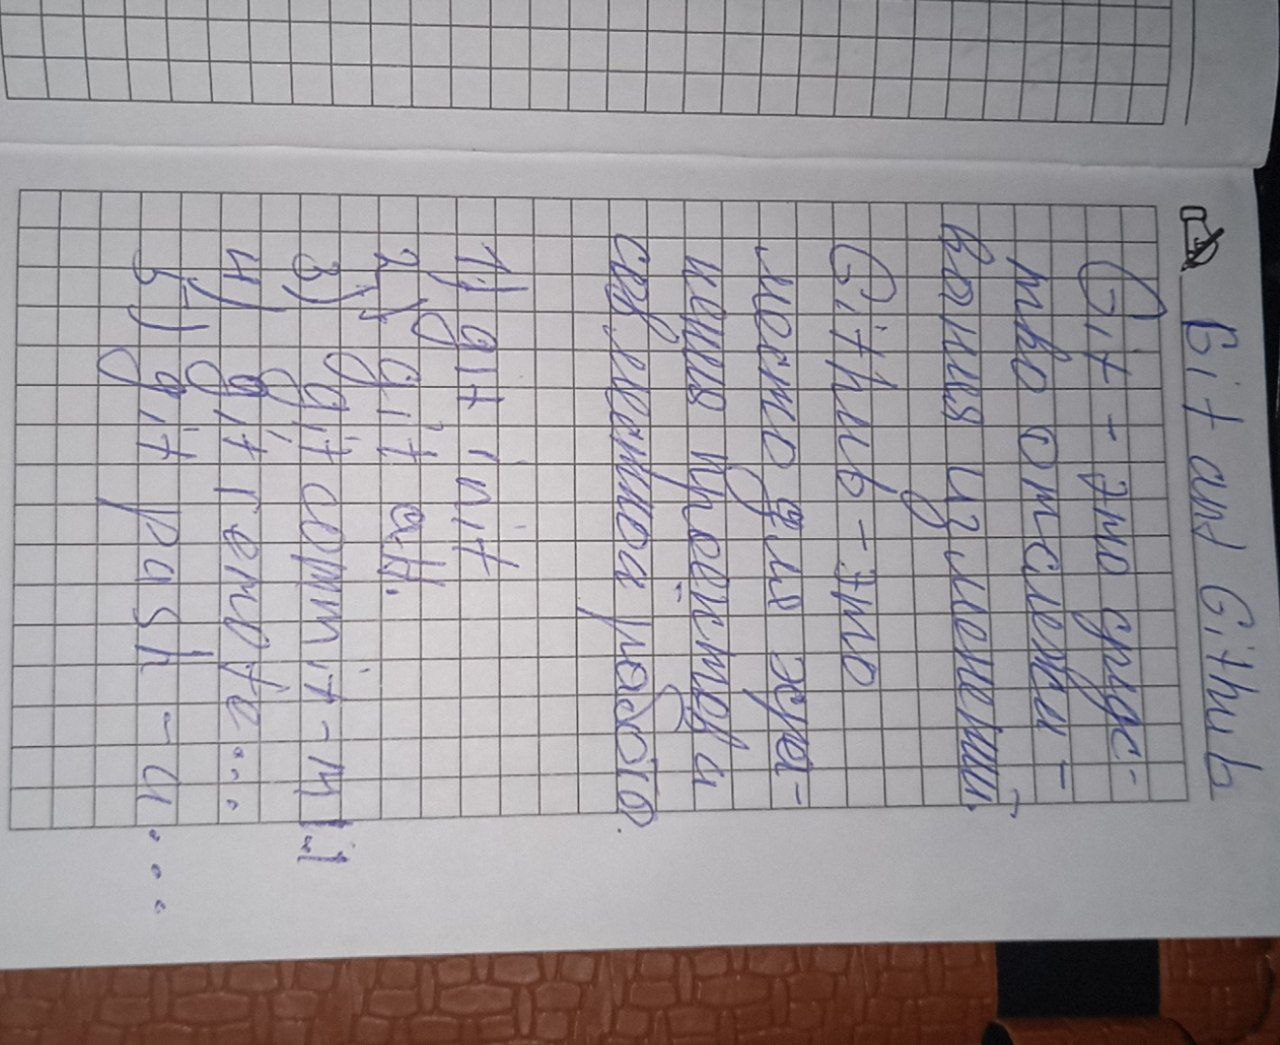 Git and Github
Git - это средс-
тво отслежи-
вания изменений
Github - это
место для хра-
нения проектов и
совместной работы.
1) git init
2) git add.
3) git commit -m "..."
4) git remote...
5) git push -u...